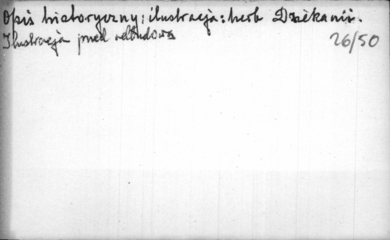 Opis historyczny; ilustracja: herb Dziekanii.
Ilustracja przed odbudową
26/50